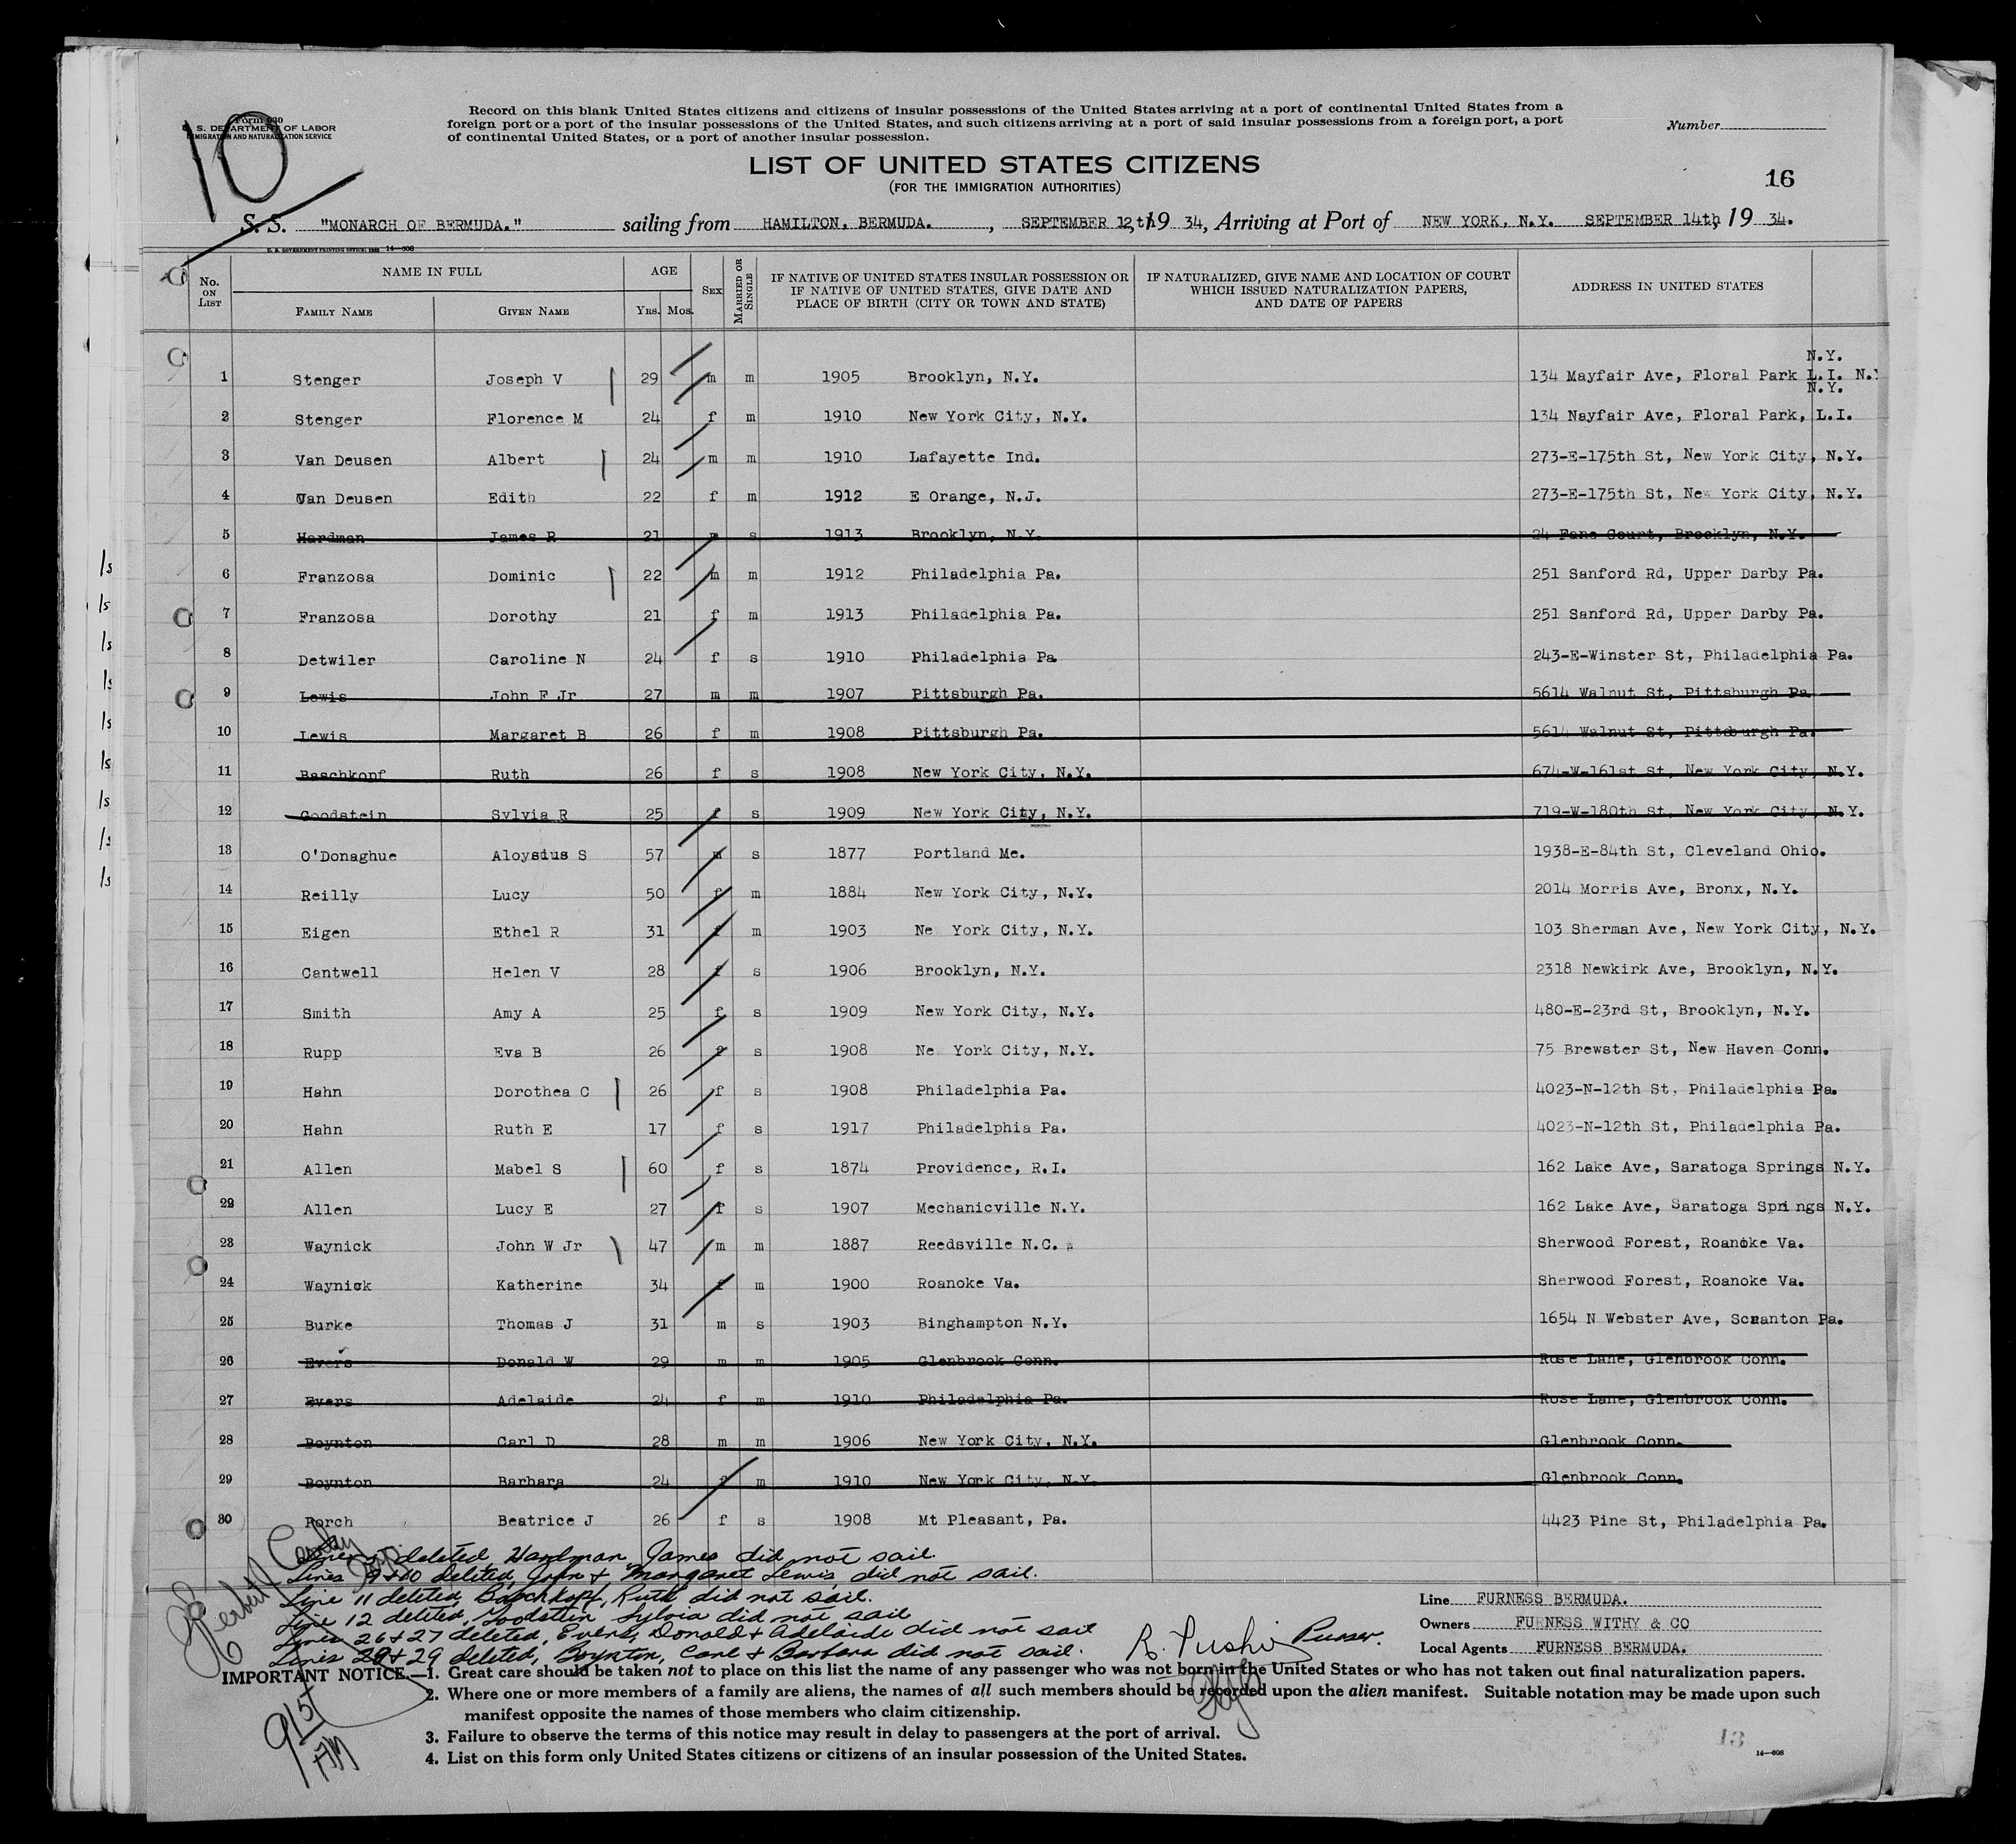 10
Form 630
U. S. DEPARTMENT OF LABOR
IMMIGRATION AND NATURALIZATION SERVICE
Record on this blank United States citizens and citizens of insular possessions of the United States arriving at a port of continental United States from a
foreign port or a port of the insular possessions of the United States, and such citizens arriving at a port of said insular possessions from a foreign port, a port
of continental United States, or a port of another insular possession.
Number
LIST OF UNITED STATES CITIZENS
(FOR THE IMMIGRATION AUTHORITIES)
16
S. S. "MONARCH OF BERMUDA." sailing from HAMILTON, BERMUDA. , SEPTEMBER 12,th 19 34, Arriving at Port of NEW YORK, N.Y. SEPTEMBER 14th, 19 34.
U. S. GOVERNMENT PRINTING OFFICE: 14—608
No. ON LIST NAME IN FULL FAMILY NAME GIVEN NAME AGE YRS. MOS. SEX MARRIED OR SINGLE IF NATIVE OF UNITED STATES INSULAR POSSESSION OR IF NATIVE OF UNITED STATES, GIVE DATE AND PLACE OF BIRTH (CITY OR TOWN AND STATE) IF NATURALIZED, GIVE NAME AND LOCATION OF COURT WHICH ISSUED NATURALIZATION PAPERS, AND DATE OF PAPERS ADDRESS IN UNITED STATES
N.Y.
1 Stenger Joseph V 29 m m 1905 Brooklyn, N.Y. 134 Mayfair Ave, Floral Park L.I. N.Y
N.Y.
2 Stenger Florence M 24 f m 1910 New York City, N.Y. 134 Nayfair Ave, Floral Park, L.I.
3 Van Deusen Albert 24 m m 1910 Lafayette Ind. 273-E-175th St, New York City, N.Y.
4 Van Deusen Edith 22 f m 1912 E Orange, N.J. 273-E-175th St, New York City, N.Y.
5 Hardman James R 21 m s 1913 Brooklyn, N.Y. 24 Fane Court, Brooklyn, N.Y.
6 Franzosa Dominic 22 m m 1912 Philadelphia Pa. 251 Sanford Rd, Upper Darby Pa.
7 Franzosa Dorothy 21 f m 1913 Philadelphia Pa. 251 Sanford Rd, Upper Darby Pa.
8 Detwiler Caroline N 24 f s 1910 Philadelphia Pa 243-E-Winster St, Philadelphia Pa.
9 Lewis John F Jr 27 m m 1907 Pittsburgh Pa. 5614 Walnut St, Pittsburgh Pa
10 Lewis Margaret B 26 f m 1908 Pittsburgh Pa. 5614 Walnut St, Pittsburgh Pa.
11 Baschkopf Ruth 26 f s 1908 New York City, N.Y. 674-W-161st St, New York City, N.Y.
12 Goodstein Sylvia R 25 f s 1909 New York City, N.Y. 719-W-180th St, New York City, N.Y.
13 O'Donaghue Aloysius S 57 m s 1877 Portland Me. 1938-E-84th St, Cleveland Ohio.
14 Reilly Lucy 50 f m 1884 New York City, N.Y. 2014 Morris Ave, Bronx, N.Y.
15 Eigen Ethel R 31 f m 1903 Ne York City, N.Y. 103 Sherman Ave, New York City, N.Y.
16 Cantwell Helen V 28 f s 1906 Brooklyn, N.Y. 2318 Newkirk Ave, Brooklyn, N.Y.
17 Smith Amy A 25 f s 1909 New York City, N.Y. 480-E-23rd St, Brooklyn, N.Y.
18 Rupp Eva B 26 f s 1908 Ne York City, N.Y. 75 Brewster St, New Haven Conn.
19 Hahn Dorothea C 26 f s 1908 Philadelphia Pa. 4023-N-12th St, Philadelphia Pa.
20 Hahn Ruth E 17 f s 1917 Philadelphia Pa. 4023-N-12th St, Philadelphia Pa.
21 Allen Mabel S 60 f s 1874 Providence, R.I. 162 Lake Ave, Saratoga Springs N.Y.
22 Allen Lucy E 27 f s 1907 Mechanicville N.Y. 162 Lake Ave, Saratoga Springs N.Y.
23 Waynick John W Jr 47 m m 1887 Reedsville N.C. Sherwood Forest, Roanoke Va.
24 Waynick Katherine 34 f m 1900 Roanoke Va. Sherwood Forest, Roanoke Va.
25 Burke Thomas J 31 m s 1903 Binghampton N.Y. 1654 N Webster Ave, Scranton Pa.
26 Evers Donald W 29 m m 1905 Glenbrook Conn. Rose Lane, Glenbrook Conn.
27 Evers Adelaide 24 f m 1910 Philadelphia Pa. Rose Lane, Glenbrook Conn.
28 Boynton Carl D 28 m m 1906 New York City, N.Y. Glenbrook Conn.
29 Boynton Barbara 24 f m 1910 New York City, N.Y. Glenbrook Conn.
30 Porch Beatrice J 26 f s 1908 Mt Pleasant, Pa. 4423 Pine St, Philadelphia Pa.
Line 5 deleted, Hardman James did not sail.
Lines 9+10 deleted, John + Margaret Lewis, did not sail.
Line 11 deleted, Baschkopf, Ruth did not sail.
Line 12 deleted, Goodstein Sylvia did not sail
Lines 26+27 deleted, Evers, Donald + Adelaide did not sail
Lines 28+29 deleted, Boynton, Carl + Barbara did not sail.
Purser.
Line FURNESS BERMUDA.
Owners FURNESS WITHY & CO
Local Agents FURNESS BERMUDA.
IMPORTANT NOTICE.—1. Great care should be taken not to place on this list the name of any passenger who was not born in the United States or who has not taken out final naturalization papers.
2. Where one or more members of a family are aliens, the names of all such members should be recorded upon the alien manifest. Suitable notation may be made upon such
manifest opposite the names of those members who claim citizenship.
3. Failure to observe the terms of this notice may result in delay to passengers at the port of arrival.
4. List on this form only United States citizens or citizens of an insular possession of the United States.
13
14—608